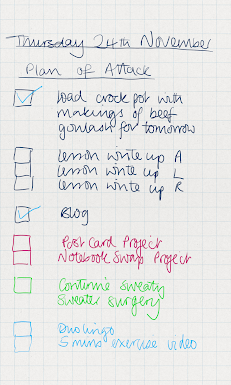 Thursday 24th November
Plan of Attack
load crock pot with
makings of beef
goulash for tomorrow
Lesson write up A
Lesson write up L
Lesson write up R
Blog
Post Card Project
Notebook Swap Project
Continue sweaty
sweater surgery
Duolingo
5 mins exercise video